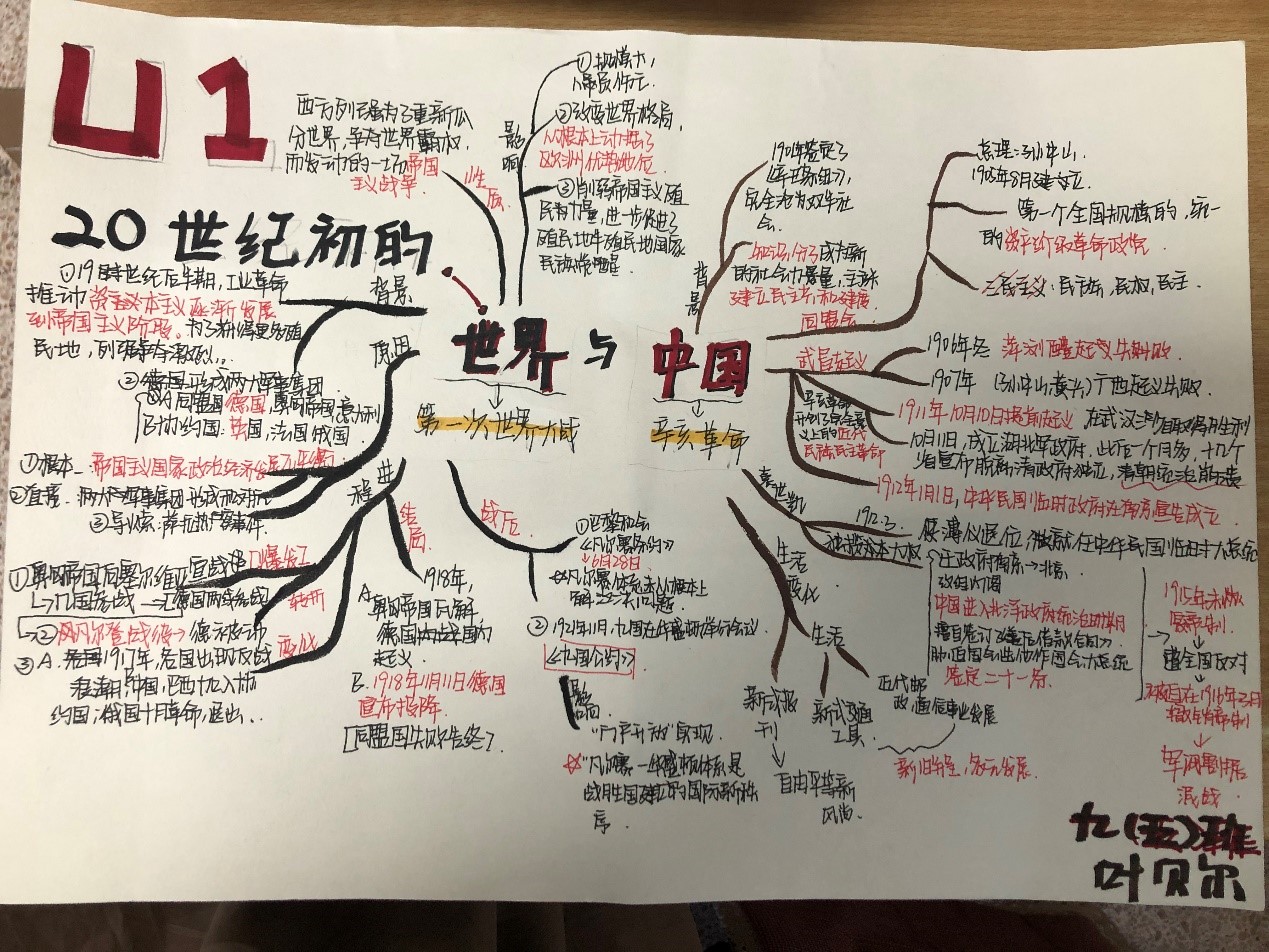 U1
20世纪初的
世界与中国
第一次世界大战
辛亥革命
性质
西方列强为了重新瓜
分世界，争夺世界霸权
而发动的一场帝国
主义战争.
影响
①规模大，
②改变世界格局，
从根本上动摇了
欧洲优势地位
③削弱帝国主义殖
民力量，进一步促进了
殖民地半殖民地国家
民族
背景
①19世纪后半期，工业革命
推动资本主义逐渐发展
到帝国主义阶段.为了获得更多殖
民地，列强争夺激烈...
②德国形成两大军事集团
A同盟国德国，奥匈帝国，意大利
B协约国：英国，法国俄国
原因
①根本—帝国主义国家政治经济发展不平衡
②直接.两大军事集团形成和对抗
③导火索：萨拉热窝事件
进程
①奥匈帝国向塞尔维亚宣战
爆发
②凡尔登战役→德被动
转折
变化
③A.1917年，各国出现反战
浪潮，中国，巴西加入协
约国；俄国十月革命，退出..
结局
A.
1918年，
奥匈帝国瓦解
德国国内
起义
B.1918年11月11日德国
宣布投降.
同盟国失败告终
战后
①巴黎和会
《凡尔赛条约》
6月28日
②1921年11月，九国在华盛顿举行会议
《九国公约》
影响
"门户开放"实现.
☆"凡尔赛—华盛顿体系是
战胜国建立的国际新秩
序.
背景
1901年签定了
《辛丑条约》，
完全沦为双半社
会.
知识分子成为新
的社会力量，主张
建立民主共和建立
同盟会
总理：孙中山.
1905年8月建立.
第一个全国规模的，统一
的资产阶级革命政党
三民主义：民族，民权，民主.
武昌起义
1906年冬 萍浏醴起义失败.
1907年（孙中山黄兴）广西起义失败.
1911年10月10日武昌起义 在武汉三镇取得胜利
10月11日，成立湖北军政府，此后一个月多，十几个
省宣布脱离清政府独立，清朝统治崩溃
1912年1月1日，中华民国临时政府在南京宣告成立.
辛亥革命
开创了完全意
义上的近代
民族民主革命
袁世凯
1912.3 使溥仪退位，
就任中华民国临时大总统
独揽大权
迁政府南京→北京.
改组内阁
中国进入北洋政府统治时期
签定二十一条.
1915年末
恢复帝制
遭全国反对
被迫在1916年3月
取消帝制
军阀割据
混战.
生活
变化
生活
新式报
刊
自由平等新
风尚.
新式交通
工具.
近代邮
政，通信事业发展
新旧并呈，多元发展.
九（五）班
叶贝尔